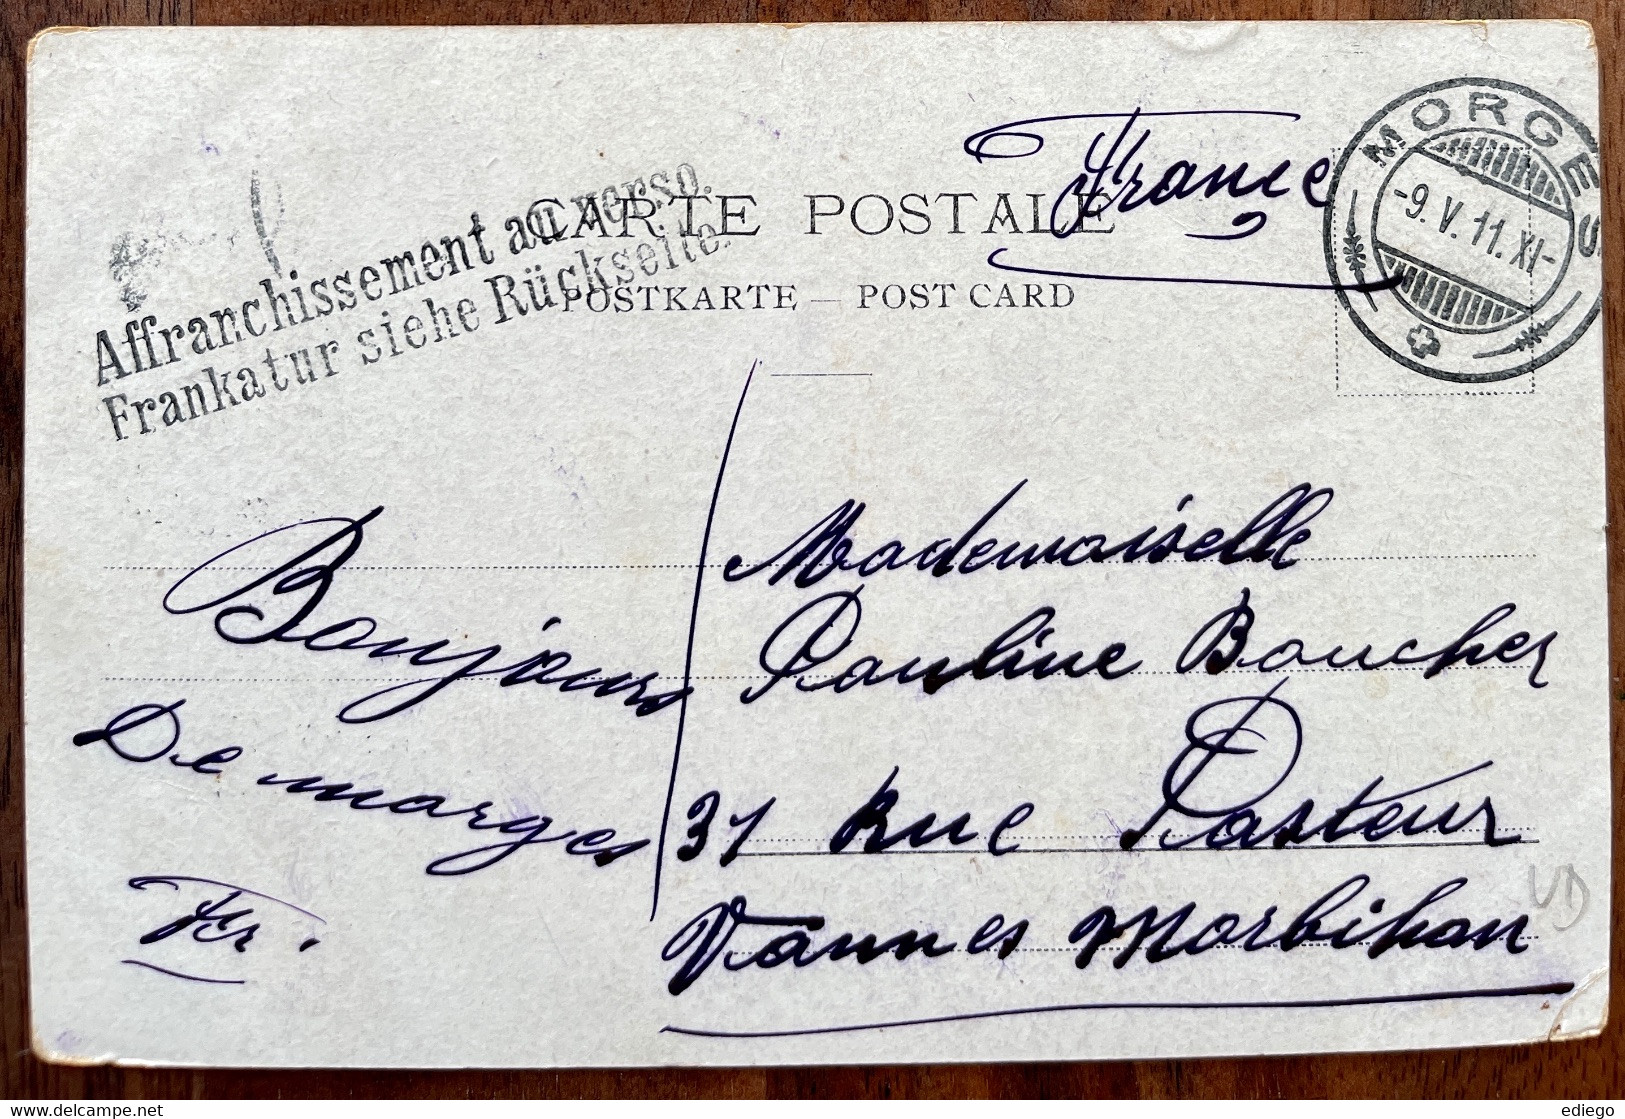 France
MORGES
-9.V.11.XI-
CARTE POSTALE
POSTKARTE — POST CARD
Affranchissement au verso.
Frankatur siehe Rückseite.
Bonjours
De morges
Fr.
Mademoiselle
Pauline Boucher
31 Rue Pasteur
Vannes Morbihan
VD
delcampe.net
ediego